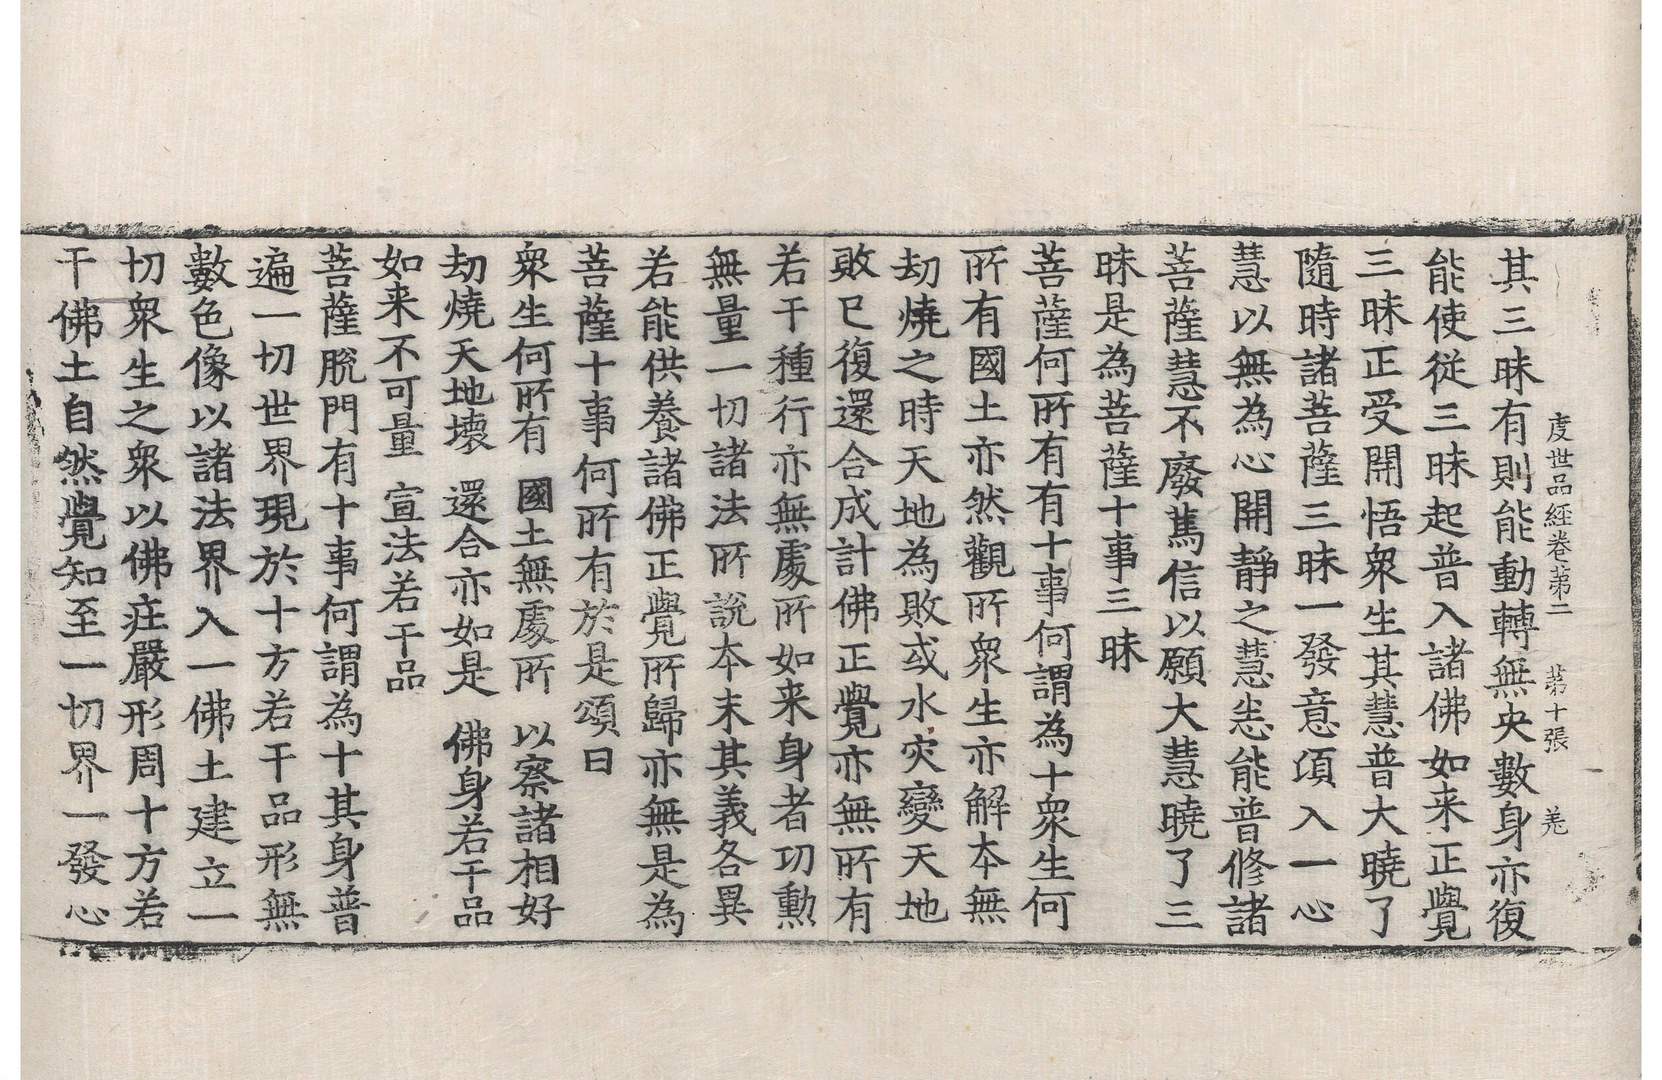 度世品經卷苐二 苐十張 羌
其三昧有則能動轉無央數身亦復
能使從三昧起普入諸佛如来正覺
三昧正受開悟衆生其慧普大曉了
隨時諸菩薩三昧一發意頃入一心
慧以無為心開靜之慧恙能普修諸
菩薩慧不廢篤信以願大慧曉了三
昧是為菩薩十事三昧
菩薩何所有有十事何謂為十衆生何
所有國土亦然觀所衆生亦解本無
劫燒之時天地為敗或水灾變天地
敗已復還合成計佛正覺亦無所有
若干種行亦無處所如来身者功勳
無量一切諸法所說本末其義各異
若能供養諸佛正覺所歸亦無是為
菩薩十事何所有於是頌曰
衆生何所有 國土無處所 以察諸相好
劫燒天地壞 還合亦如是 佛身若干品
如来不可量 宣法若干品
菩薩脫門有十事何謂為十其身普
遍一切世界現於十方若干品形無
數色像以諸法界入一佛土建立一
切衆生之衆以佛莊嚴形周十方若
干佛土自然覺知至一切界一發心